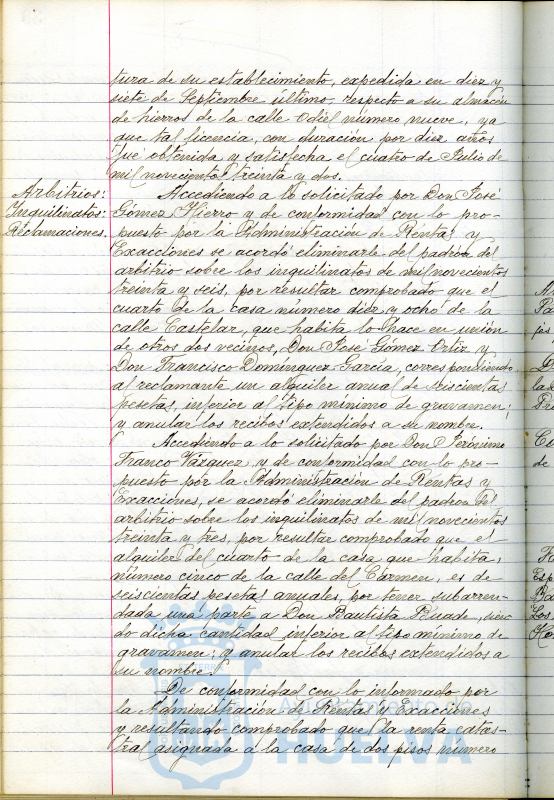 tura de su establecimiento, expedida en diez y
siete de Septiembre último, respecto a su almacén
de hierros de la calle Odiel número nueve, ya
que tal licencia, con duración por diez años
fué obtenida y satisfecha el cuatro de Julio de
mil novecientos treinta y dos.
Arbitrios:
Inquilinatos:
Reclamaciones.
Accediendo a lo solicitado por Don José
Gómez Hierro y de conformidad con lo pro-
puesto por la Administración de Rentas y
Exacciones se acordó eliminarle del padrón del
arbitrio sobre los inquilinatos de mil novecientos
treinta y seis, por resultar comprobado que el
cuarto de la casa número diez y ocho de la
calle Castelar, que habita lo hace en unión
de otros dos vecinos, Don José Gómez Ortiz y
Don Francisco Domínguez García, correspondiendo
al reclamante un alquiler anual de seiscientas
pesetas, inferior al tipo mínimo de gravamen;
y anular los recibos extendidos a su nombre.
Accediendo a lo solicitado por Don Jerónimo
Franco Vázquez, y de conformidad con lo pro-
puesto por la Administración de Rentas y
Exacciones, se acordó eliminarle del padrón del
arbitrio sobre los inquilinatos de mil novecientos
treinta y tres, por resultar comprobado que el
alquiler del cuarto de la casa que habita,
número cinco de la calle del Carmen, es de
seiscientas pesetas anuales, por tener subarren-
dada una parte a Don Bautista, sien-
do dicha cantidad inferior al tipo mínimo de
gravamen; y anular los recibos extendidos a
su nombre.
De conformidad con lo informado por
la Administración de Rentas y Exacciones
y resultando comprobado que la renta catas-
tral asignada a la casa de dos pisos número
HUELVA